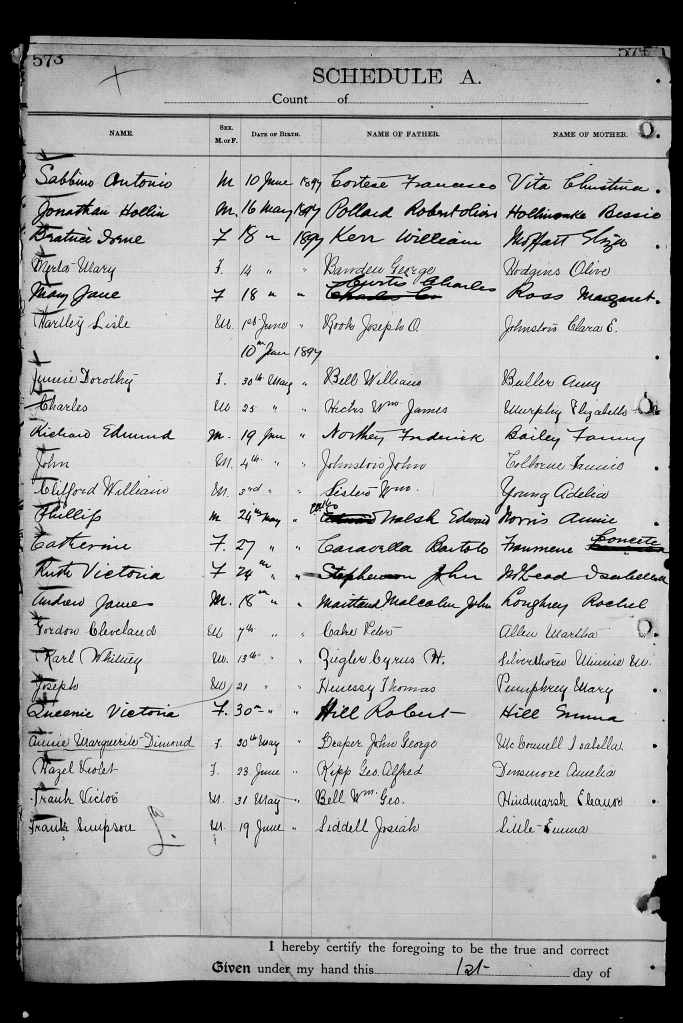 573 574
SCHEDULE A.
Count of
NAME. SEX. M. or F. DATE OF BIRTH. NAME OF FATHER. NAME OF MOTHER.
Sabbino Antonio M 10 June 1897 Cortese Francesco Vita Christina
Jonathan Hollin M. 16 May 1897 Pollard Robert Hollinrake Bessie
Beatrice Irene F 18 " 1897 Kerr William Moffatt Eliza
Myrta Mary F. 14 " " Bawden George Hodgins Olive
Mary Jane F 18 " " Curtis Charles Ross Margaret
Hartley Lisle M. 1st June " Rook Joseph O. Johnston Clara E.
10th June 1897
Jennie Dorothy F. 30th May " Bell William Buller Amy
Charles M 25 " " Wm James Murphy Elizabeth
Richard Edmund M. 19 June " Northey Frederick Bailey Fanny
John M. 4th " " Johnston John Colborne Fannie
Clifford William M. 3rd " " Sisters Wm. Young Adelia
Phillip M 24th May " Walsh Edward Norris Annie
Catherine F. 27 " " Caravella Bartolo Concete
Ruth Victoria F 24th " " Stephenson John McLeod Isabella
Andrew James M. 18th " " Maitland Malcolm John Loughrey Rachel
Gordon Cleveland M 7th " " Cake Peter Allen Martha
Karl Whitney M. 13th " " Ziegler Cyrus H. Silverthorn Minnie M.
Joseph M 21 " " Henessy Thomas Pumphrey Mary
Queenie Victoria F. 30th " " Hill Robert Hill Emma
Annie Marguerite Dimond F. 30th May " Draper John George McConnell Isabella
Hazel Violet F. 23 June " Kipp Geo. Alfred Densmore Amelia
Frank Victor M. 31 May " Bell Wm. Geo. Hindmarsh Eleanor
Frank Simpson M. 19 June " Liddell Josiah Little Emma
I hereby certify the foregoing to be the true and correct
Given under my hand this 1st day of